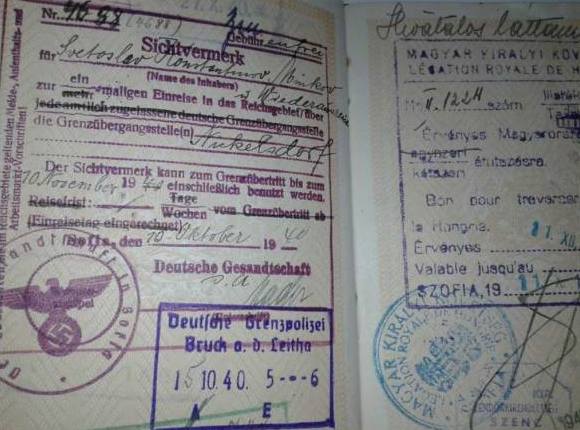 Nr. 4688
Gebühr
Sichtvermerk
für Svetoslav Konstantinov Minkov
(Name des Inhabers)
zur ein
mehr-maligen Einreise in das Reichsgebiet über
u. Wiederausreise
jede amtlich zugelassene deutsche Grenzübergangsstelle
die Grenzübergangsstelle(n) Nickelsdorf
Der Sichtvermerk kann zum Grenzübertritt bis zum
10 November 1940 einschließlich benutzt werden.
Reisefrist: Tage
Wochen vom Grenzübertritt ab
(Einreisetag eingerechnet)
Sofia, den 10. Oktober 1940
Deutsche Gesandtschaft
Gesandtschaft in Sofia
Deutsche Grenzpolizei
Bruck a. d. Leitha
15.10.40. 5---6
A E
Hivatalos láttam
MAGYAR KIRALYI KÖV
LÉGATION ROYALE DE H
No II. 1224 szám
Érvényes Magyaror
egyszeri átutazásra
Bon pour traverser
la Hongrie.
Érvényes
11. XII
Valable jusqu'au
SZOFIA, 19
MAGYAR KIRÁLYI
LEGATION ROYALE DE
SZENC